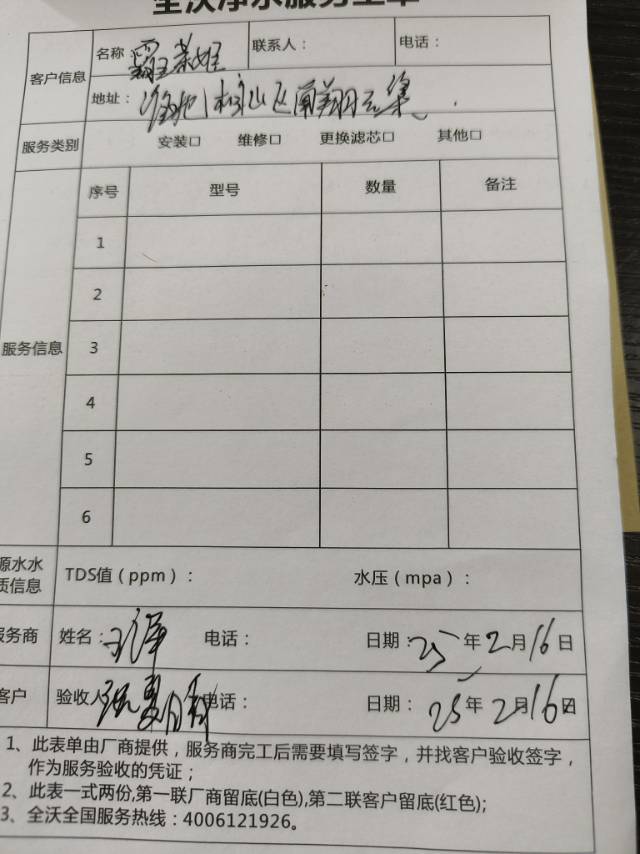 全沃净水服务工单
客户信息
名称
联系人：
电话：
地址：
服务类别
安装口 维修口 更换滤芯口 其他口
服务信息
序号 型号 数量 备注
1
2
3
4
5
6
源水水
质信息
TDS值（ppm）： 水压（mpa）：
服务商 姓名： 电话： 日期：25年2月16日
客户 验收人 电话： 日期：25年2月16日
1、此表单由厂商提供，服务商完工后需要填写签字，并找客户验收签字，
作为服务验收的凭证；
2、此表一式两份,第一联厂商留底(白色),第二联客户留底(红色);
3、全沃全国服务热线：4006121926。